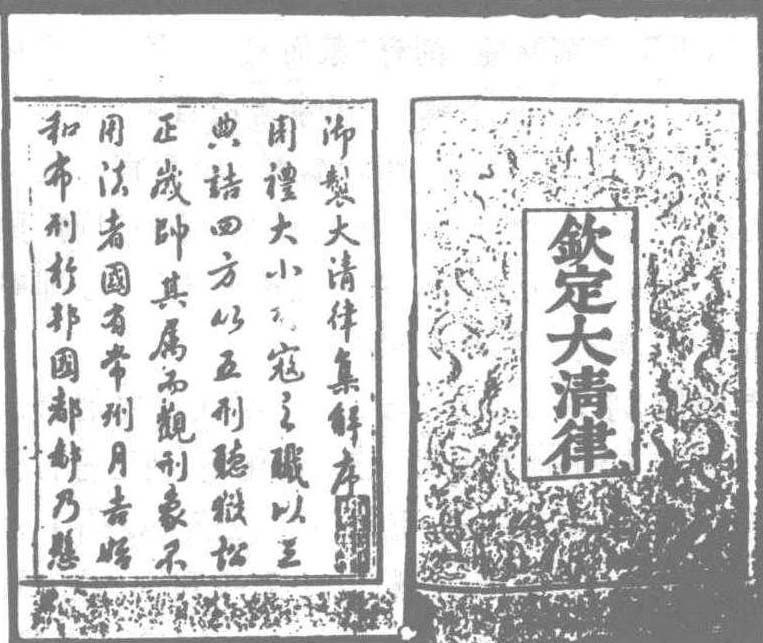 欽定大清律
御製大清律集解序
周禮大小寇之職以三
典詰四方以五刑聽獄訟
正歲帥其属而觀刑象不
用法者國有常刑月吉始
和布刑於邦國都鄙乃懸